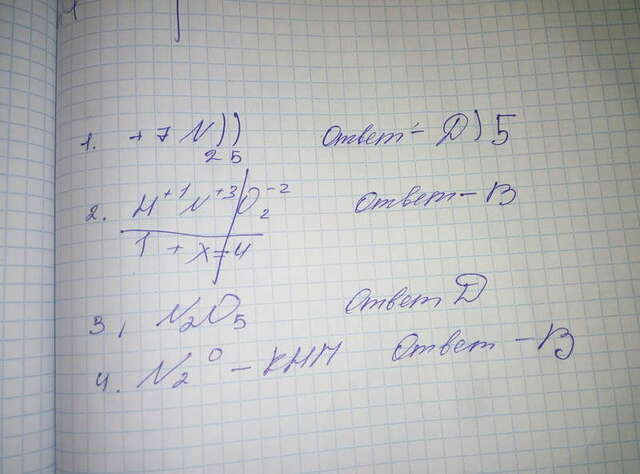 1. +7 N )) 2 5 Ответ - D) 5
2. H⁺¹ N⁺³ / O₂⁻² Ответ - B
1 + x = 4
3, N₂O₅ Ответ D
4. N₂⁰ - КНП Ответ - B